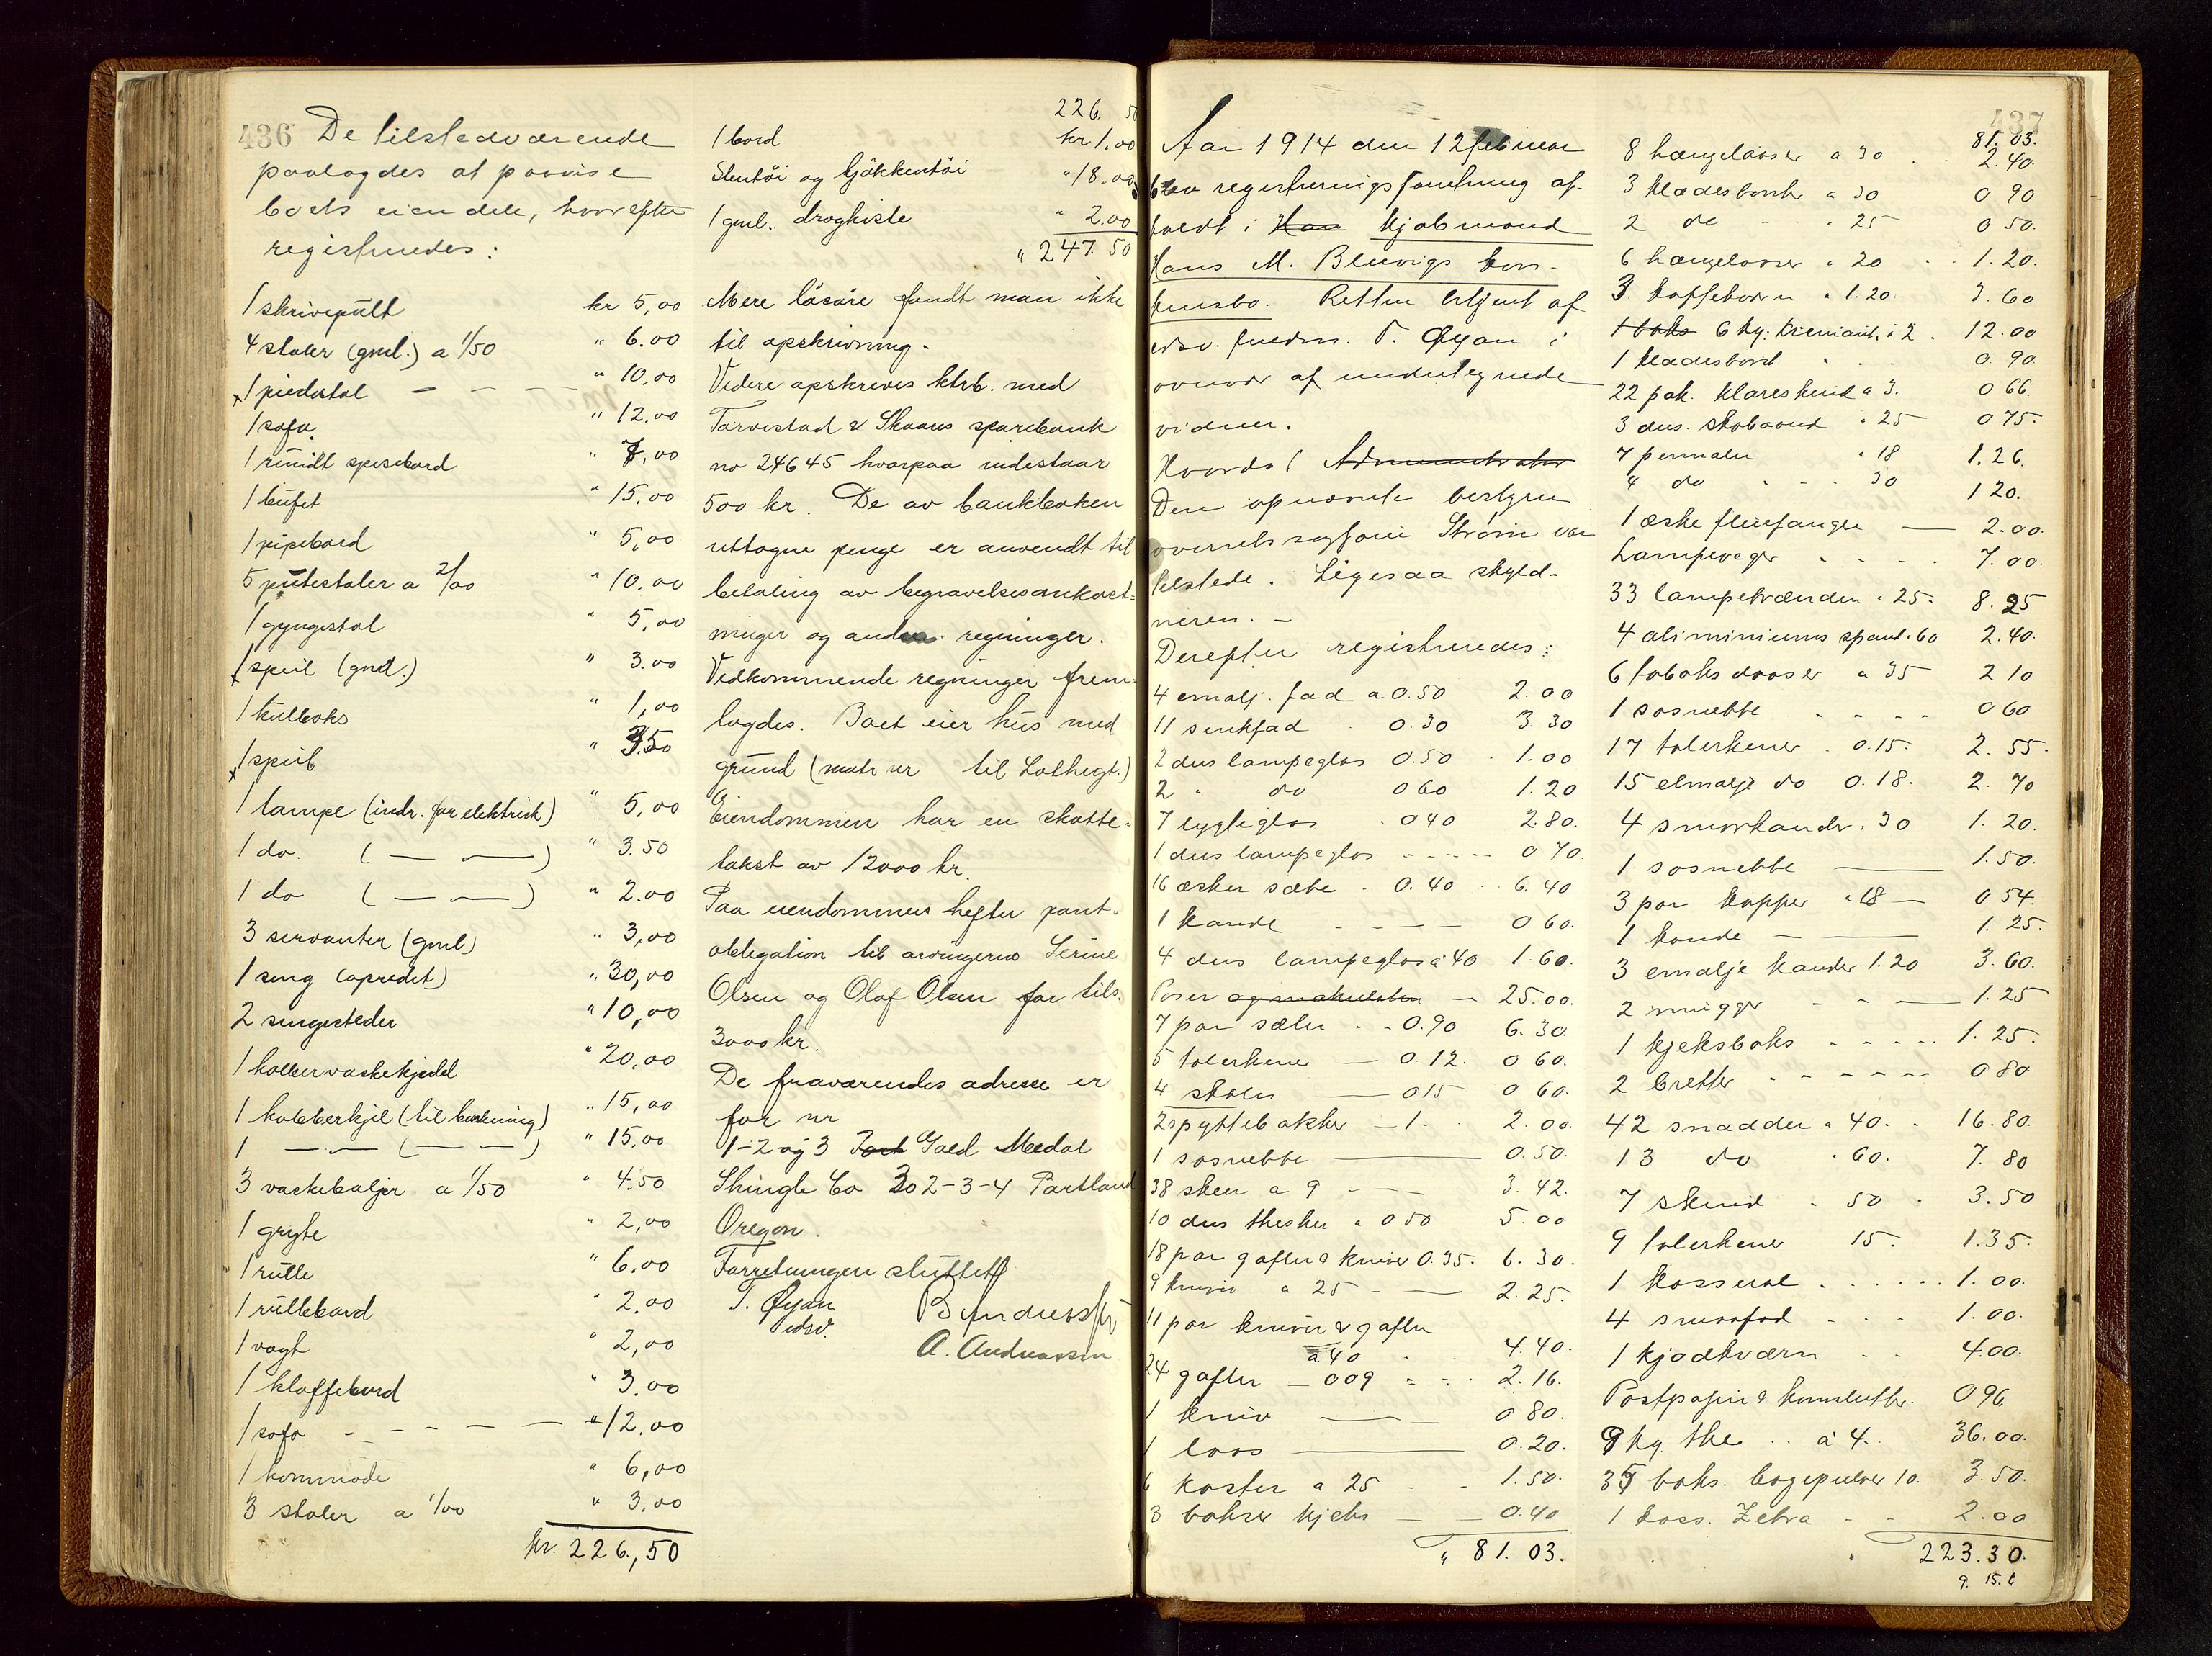 436 De tilstedværende
paalagdes at paavise
boets eiendele, hvorefter
registreredes:
1 skrivepult kr 5,00
4 stoler (gml.) a 1/50 " 6.00
x 1 piedestal — — — " 10,00
1 sofa " 12.00
1 rundt spisebord " 7,00
1 bufet " 15.00
1 pipebord " 5,00
5 putestoler a 2/00 " 10.00
1 gyngestol " 5,00
x 1 speil (gml.) " 3.00
1 kulboks " 1,00
x 1 speil " 3.50
1 lampe (indr. for elektrisk) " 5,00
1 do. ( — — ) " 3.50
1 do ( — — ) " 2.00
3 servanter (gml) " 3,00
1 seng (opredet) " 30,00
2 sengesteder " 10,00
1 kobbervaskekjedel " 20,00
1 kobberkjel (til bakning) " 15,00
1 — — ( — — ) " 15.00
3 vaskebaljer a 1/50 " 4.50
1 gryte " 2,00
1 rulle " 6.00
1 rullebord " 2.00
1 vegt " 2,00
1 klaffebord " 3.00
1 sofa - - - — — " 12,00
1 kommode " 6,00
3 stoler a 1/00 " 3,00
kr. 226,50
226. 50
1 bord kr 1.00
Stentöi og kjökkentöi " 18.00
1 gml. dragkiste " 2.00
" 247.50
Mere lösöre fandt man ikke
til opskrivning.
Videre opskreves ktrb. med
Tarvestad & Skaars sparebank
no 24645 hvorpaa indestaar
500 kr. De av bankboken
uttagne penge er anvendt til
betaling av begravelsesomkost-
ninger og andre regninger.
Vedkommende regninger frem-
lagdes. Boet eier hus med
grund (matr nr til Lothegt.)
Eiendommen har en skatte-
takst av 12000 kr.
Paa eiendommen hefter pant-
obligation til arvingerne Serine
Olsen og Olaf Olsen for tils.
3000 kr.
De fraværendes adresse er
for nr
1-2 og 3 Gaed Medal
Shingle Co 302-3-4 Portland
Oregon.
Forretningen sluttet
T. Øyan
edsv.
A. Andreassen
437
Aar 1914 den 12 februar
blev registreringsforretning af-
holdt i Haa kjøbmand
Hans M. Bleivigs kon-
kursbo. Retten betjent af
edsv. fuldm. T. Øyan i
overvær af undertegnede
vidner.
Hvorda! Administrator
Den opnævnte bestyrer
overretssagfører Strøm var
tilstede. Ligesaa skyld-
neren. —
Derefter registreredes:
4 emalj. fad a 0.50 2.00
11 sinkfad 0.30 3.30
2 dus lampeglas 0.50 1.00
2 " do 0 60 1.20
7 lygteglas 0 40 2.80.
1 dus lampeglas ----- 0 70.
16 æsker sæbe . 0.40 6.40
1 kande - - - - 0 60.
4 dus lampeglas á 40 1.60.
Poser og makulatur — 25.00.
7 par sæler . . 0.90 6.30
5 talerkener — 0.12. 0 60.
4 skoler — 0 15 0 60.
2 spyttebakker — 1. 2.00.
1 sosnebbe — 0.50.
38 skeer a 9 — — 3.42.
10 dus theskeer a 0 50 5.00
18 par gafler & kniver 0.35. 6.30.
9 kniver a 25 - — 2.25.
11 par kniver & gafler
a 40 4.40.
24 gafler — 0 09 2.16.
1 kniv — 0 80.
1 laas — 0.20.
6 koster a 25 1.50.
3 bokser kjeks — 0.40
" 81.03.
81.03.
8 hængelaaser a 30 2.40.
3 klædesbørster a 30 0 90
2 do - " 25 0 50.
6 hængelaaser " 20 1.20.
3 kaffebørn " 1.20. 3.60
1 boks 6 kg. 12.00
1 klædesbørst 0.90
22 pak. a 3. 0 66.
3 dus. skobaand " 25 0 75.
7 permaler " 18 1.26.
4 do - - - 30 1 20.
1 æske fluefanger — 2.00.
Lampevæger - - - 7.00.
33 lampebrændere " 25. 8.25
4 aliminiums spand. 60 2.40.
6 tobaksdaaser a 35 2 10
1 sosnebbe - - - - 0 60
17 talerkener . 0.15. 2.55.
15 elmalje do 0.18. 2.70
4 smørkander . 30 1.20.
1 sosnebbe — 1.50.
3 par kopper " 18 — 0 54.
1 kande — — 1.25.
3 emalje kander 1.20 3.60.
2 mugger - - — 1.25
1 kjeksboks - - - - 1.25.
2 bretter - - - - - 0 80
42 snadder " 40. 16.80.
13 do " 60. 7.80
7 skind " 50 . 3.50
9 talerkener 15. 1.35.
1 kasserol . . . . . . 1.00.
4 smørfad - - - 1.00.
1 kjødkværn - - 4.00.
Postpapir & konvolutter. 0 96
9 kg the . . a 4. 36.00.
35 boks. bagepulver 10. 3.50.
1 kass. Zebra - - 2.00
" 223.30.